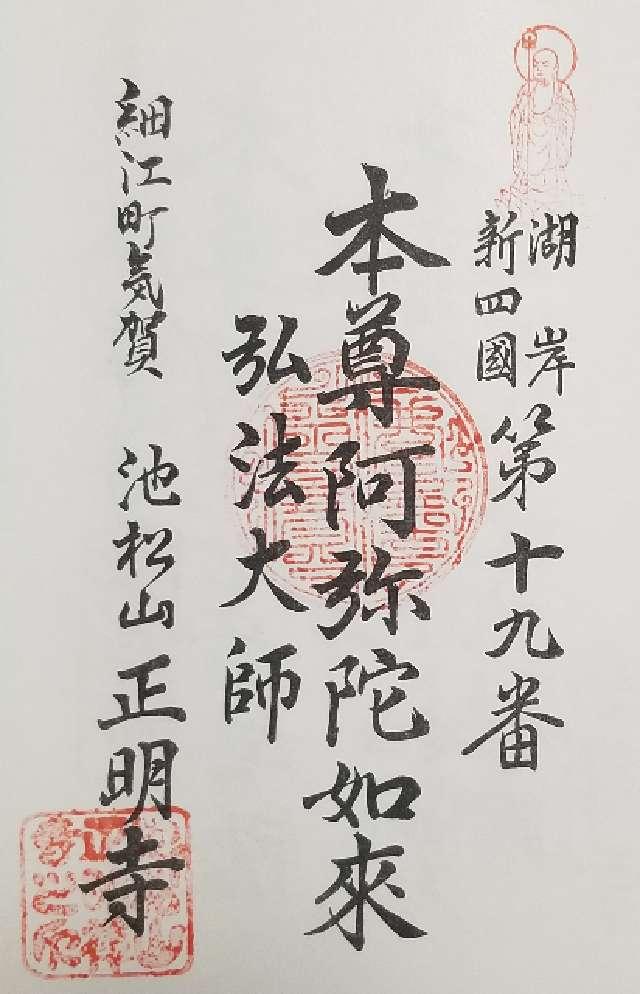 湖岸
新四國
第十九番
本尊阿弥陀如來
弘法大師
細江町氣賀　池松山正明寺